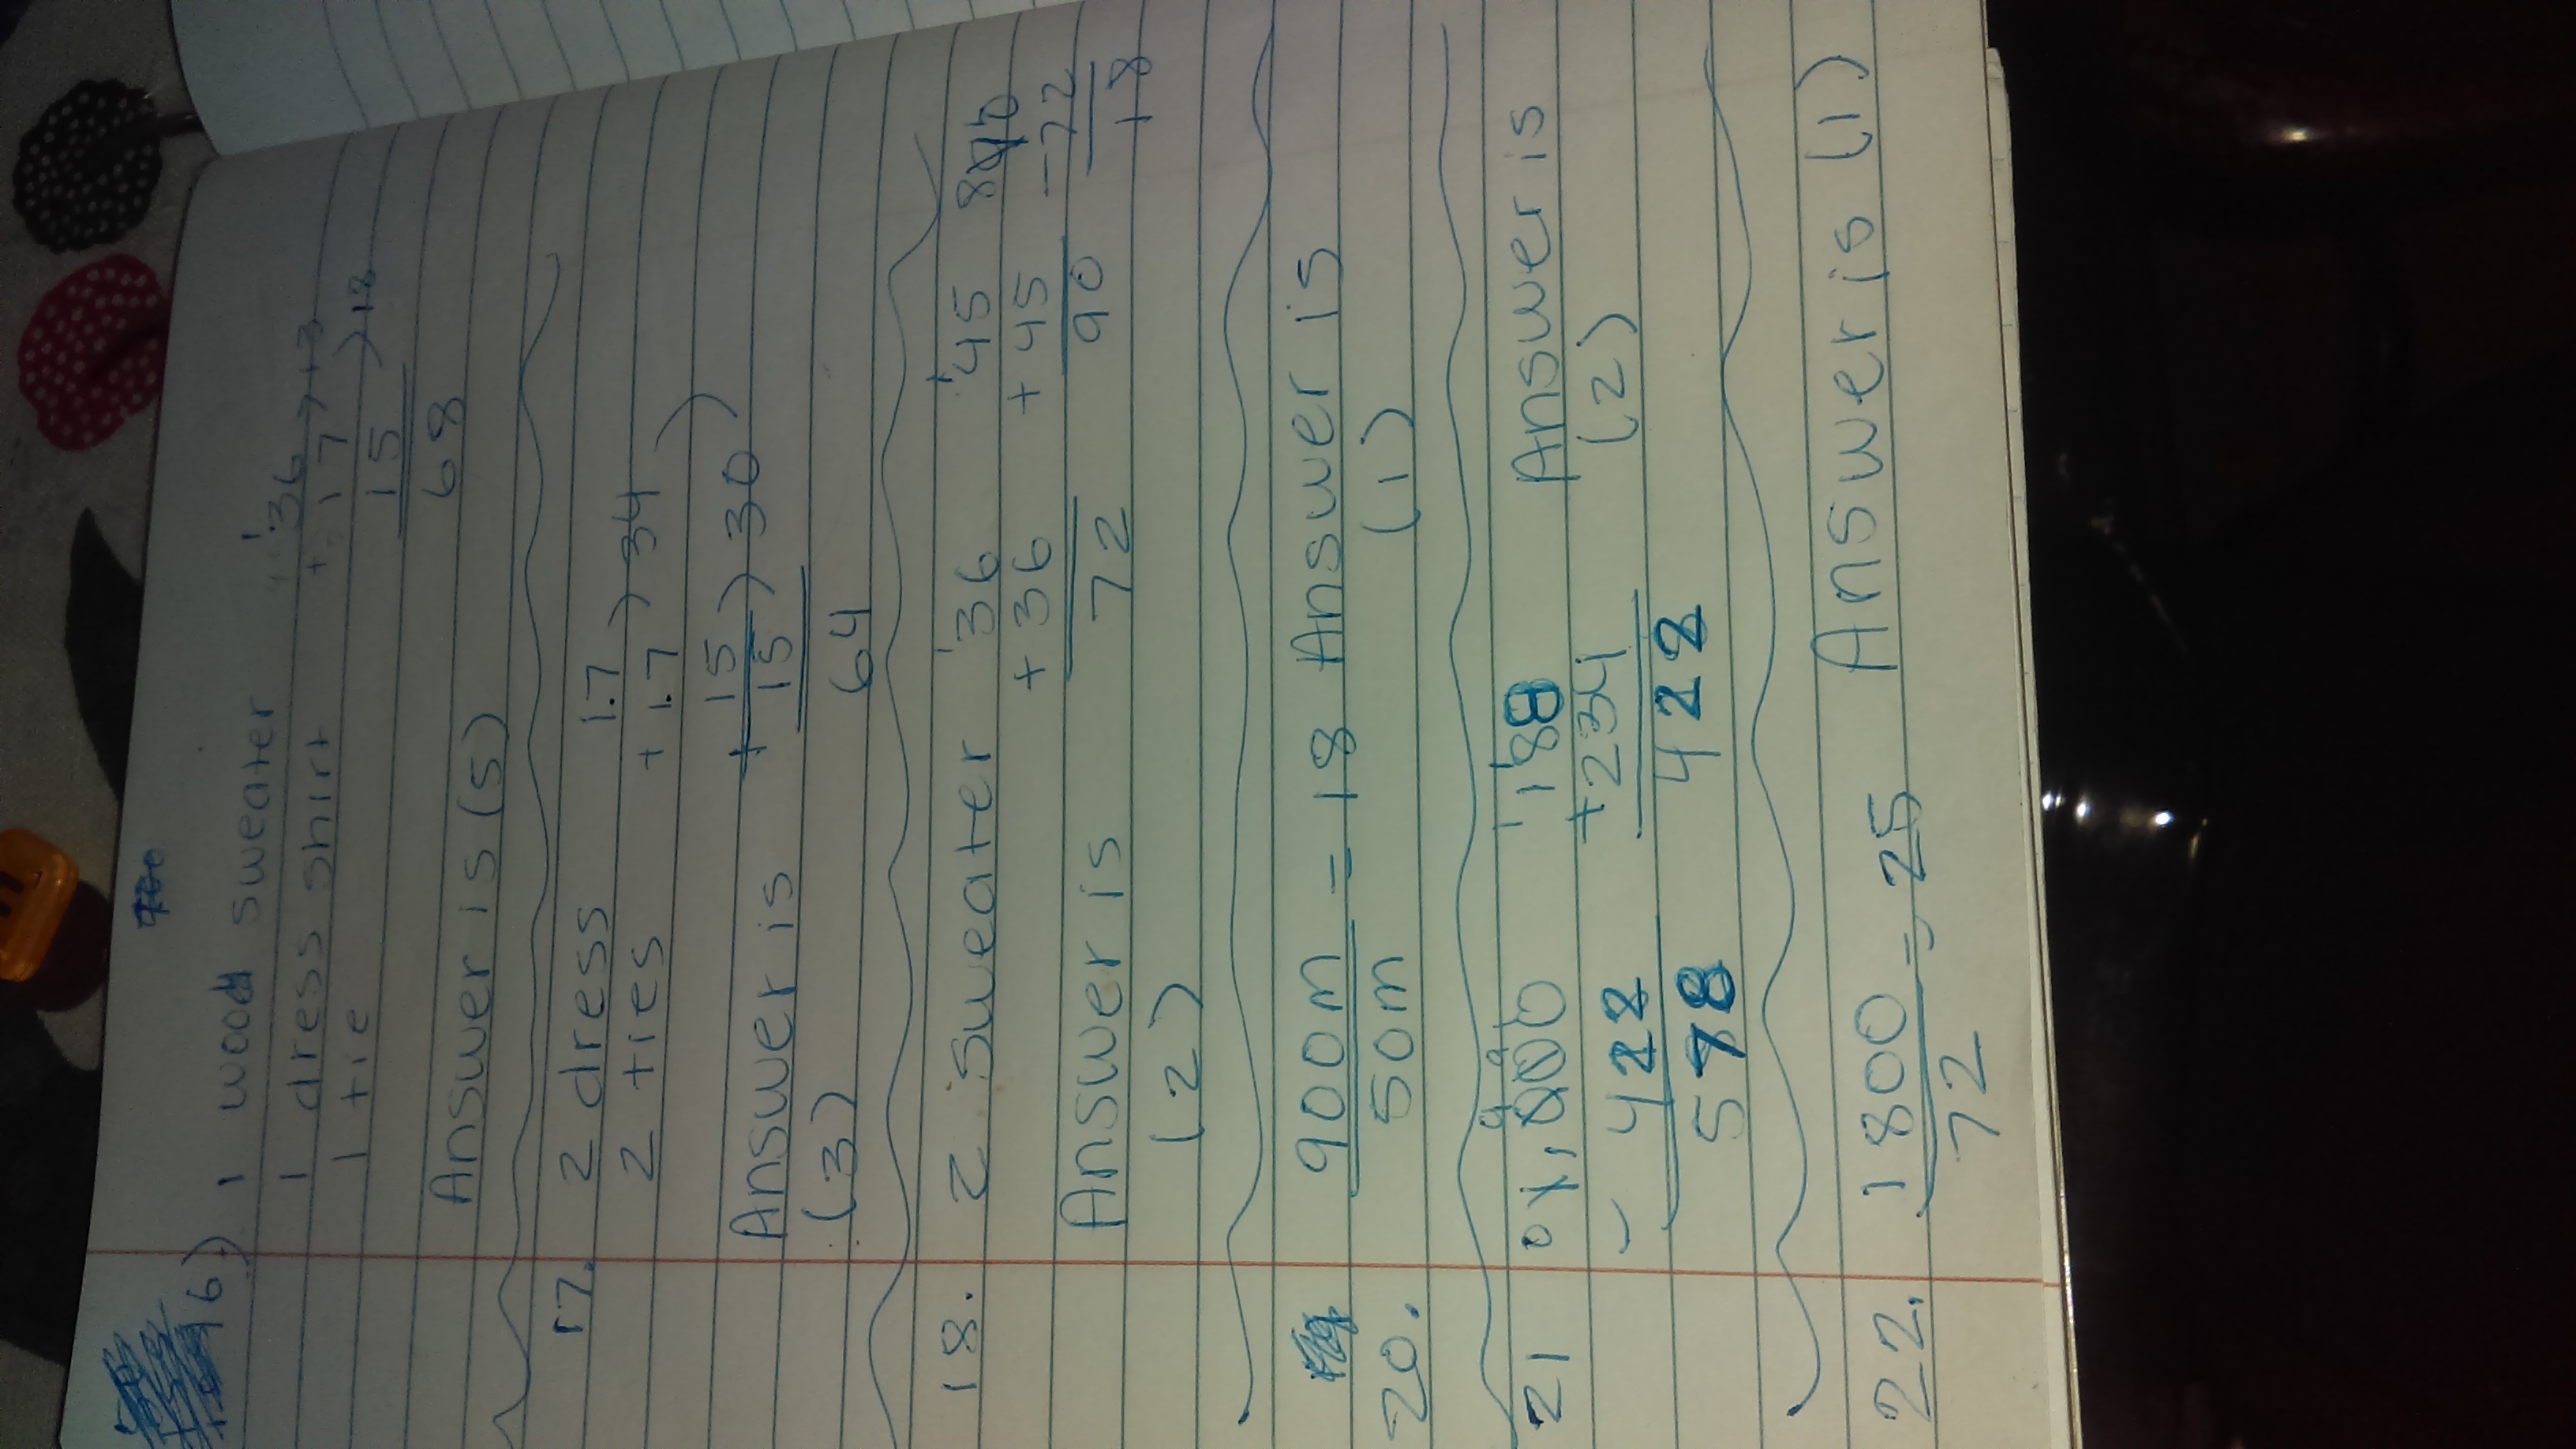 16) 1 wood sweater 36
1 dress shirt + 17 > 13
1 tie 15 ) 18
68
Answer is (5)
17. 2 dress 1.7
2 ties + 1.7 ) 34
15
Answer is + 15 ) 30
(3) 64
18. 2 sweater 36 45
+ 36 + 45 - 72
Answer is 72 90 18
(2)
900m = 18 Answer is
20. 50m (1)
21 1,000 188 Answer is
- 422 + 234 (2)
578 422
22. 1800 = 25 Answer is (1)
72